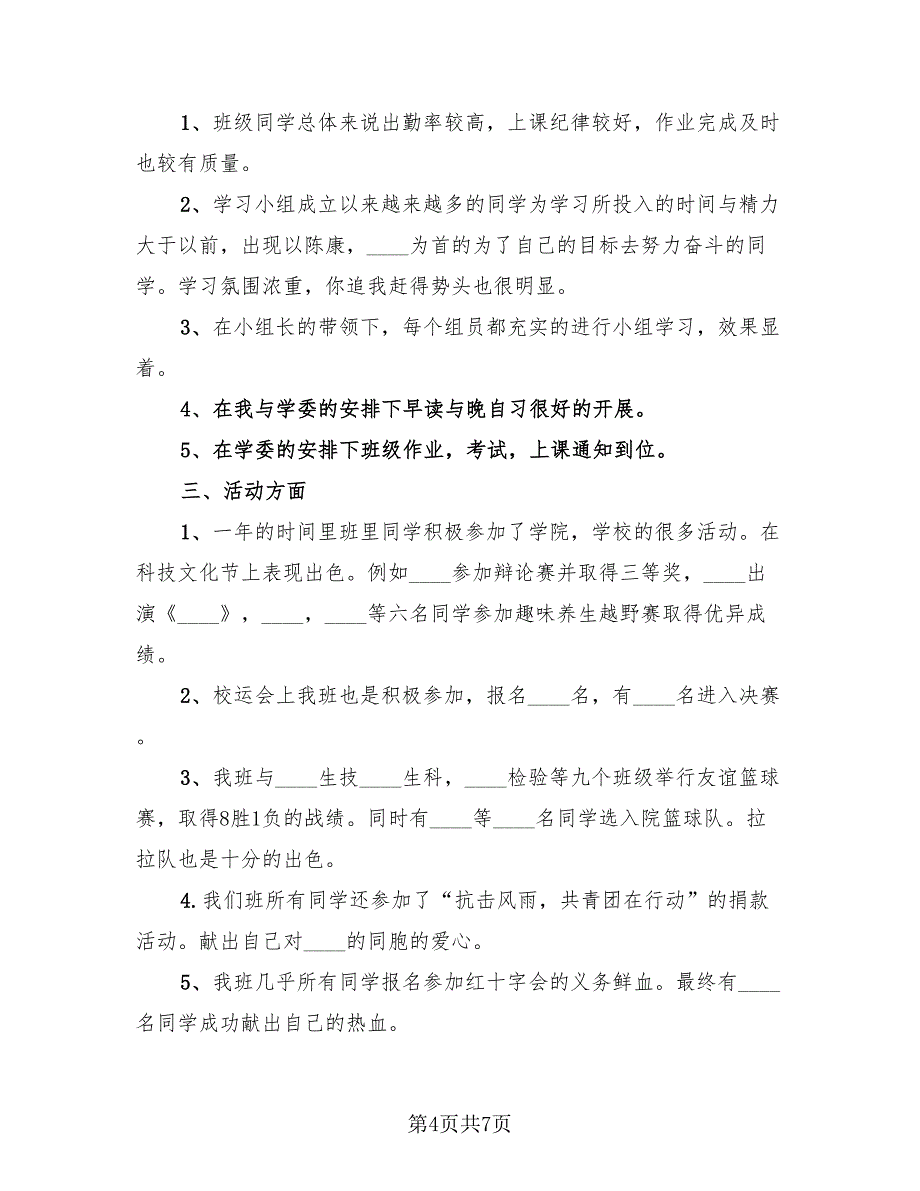 1、班级同学总体来说出勤率较高，上课纪律较好，作业完成及时
也较有质量。
2、学习小组成立以来越来越多的同学为学习所投入的时间与精力
大于以前，出现以陈康，____为首的为了自己的目标去努力奋斗的同
学。学习氛围浓重，你追我赶得势头也很明显。
3、在小组长的带领下，每个组员都充实的进行小组学习，效果显
着。
4、在我与学委的安排下早读与晚自习很好的开展。
5、在学委的安排下班级作业，考试，上课通知到位。
三、活动方面
1、一年的时间里班里同学积极参加了学院，学校的很多活动。在
科技文化节上表现出色。例如____参加辩论赛并取得三等奖，____出
演《____》，____，____等六名同学参加趣味养生越野赛取得优异成
绩。
2、校运会上我班也是积极参加，报名____名，有____名进入决赛
。
3、我班与____生技____生科，____检验等九个班级举行友谊篮球
赛，取得8胜1负的战绩。同时有____等____名同学选入院篮球队。拉
拉队也是十分的出色。
4.我们班所有同学还参加了“抗击风雨，共青团在行动”的捐款
活动。献出自己对____的同胞的爱心。
5、我班几乎所有同学报名参加红十字会的义务鲜血。最终有____
名同学成功献出自己的热血。
第4页共7页